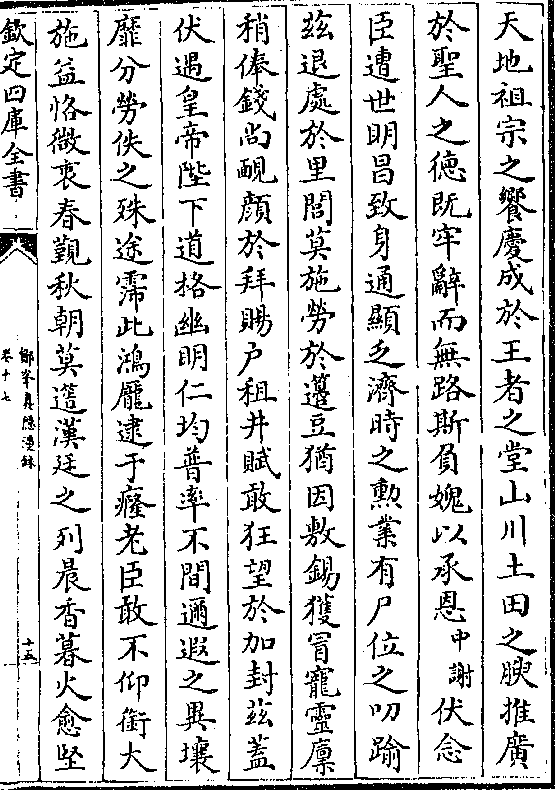 天地祖宗之饗慶成於王者之堂山川土田之腴推廣
於聖人之德既牢辭而無路斯負媿以承恩中謝伏念
臣遭世明昌致身通顯乏濟時之勲業有尸位之叨踰
兹退處於里閭莫施勞於籩豆猶因敷錫獲冒寵靈廪
稍俸錢尚靦顔於拜賜户租井賦敢狂望於加封兹蓋
伏遇皇帝陛下道格幽明仁均普率不間邇遐之異壤
靡分勞佚之殊途霈此鴻厖逮于癃老臣敢不仰銜大
施益恪微衷春覲秋朝莫簉漢廷之列晨香暮火愈堅
欽定四庫全書
鄮峯真隱漫録
卷十七
十五